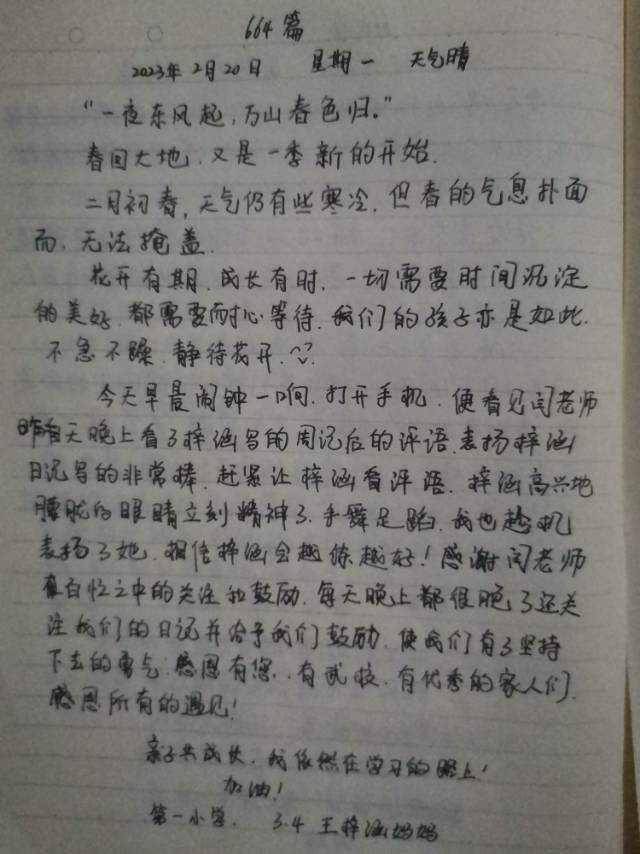 664篇
2023年2月20日 星期一 天气晴
“一夜东风起,万山春色归。”
春回大地,又是一季新的开始.
二月初春,天气仍有些寒冷,但春的气息扑面
而,无法掩盖.
花开有期,成长有时,一切需要时间沉淀
的美好,都需要耐心等待,我们的孩子亦是如此.
不急不躁,静待花开.
今天早晨闹钟一响,打开手机,便看见闫老师
昨天晚上看了梓涵写的周记后的评语,表扬梓涵
日记写的非常棒,赶紧让梓涵看评语,梓涵高兴地
朦胧的眼睛立刻精神了,手舞足蹈,我也趁机
表扬了她,相信梓涵会越练越好!感谢闫老师
在百忙之中的关注和鼓励,每天晚上都很晚了还关
注我们的日记并给予我们鼓励,使我们有了坚持
下去的勇气.感恩有您,有武校,有优秀的家人们.
感恩所有的遇见!
亲子共成长,我依然在学习的路上!
加油!
第一小学. 3.4 王梓涵妈妈